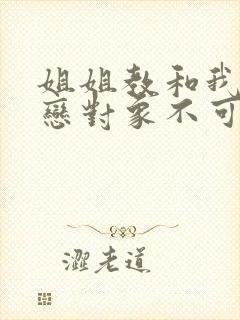 姐姐教和我
戀對象不可
澀老道